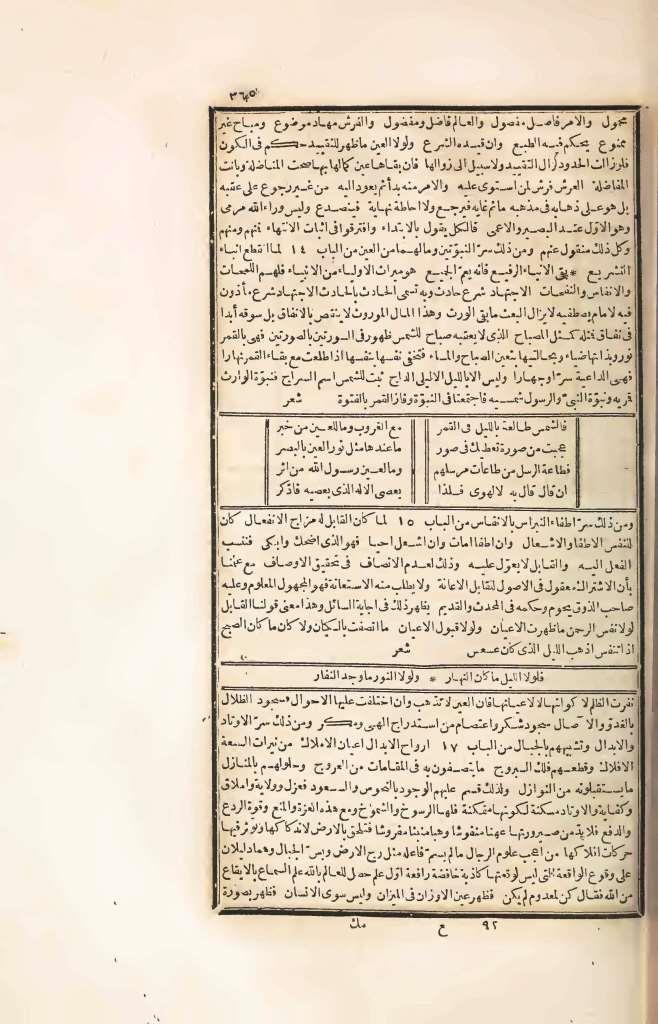 ٣٦٥
محمول والامر فاصل مفصول والعالم فاضل ومفضول والفرش مهاد موضوع ومباح غير
ممنوع يحكم فيه الطبع وان قيده الشرع ولولا العين ما ظهر للتقييد حكم في الكون
فلو زالت الحدود لزال التقييد ولا سبيل الى زوالها فان بقاءها عين كمالها بها صحت المناضلة وبانت
المفاضلة العرش فرش لمن استوى عليه والامر منه بدأ ثم يعود اليه من غير رجوع على عقبه
بل هو على ذهابه في مذهبه ما ثم غايه فيرجع ولا احاطة نهاية فينصدع وليس وراء الله مرمى
وهو الاول عند البصير والاعمى فالكل يقول بالابتداء وافترقوا في اثبات الانتهاء فمنهم ومنهم
وكل ذلك منقول عنهم ومن ذلك سر النبوتين وما لهما من العين من الباب ١٤ لما انقطع انباء
التشريع * بقى الانباء الرفيع فانه يعم الجميع هو ميراث الاولياء من الانبياء فلهم اللمحات
والانفاس والنفحات الاجتهاد شرع حادث وبه تسمى الحادث بالحادث الاجتهاد شرع مأذون
فيه لامام يصطفيه لا يزال البعث ما بقى الورث وهذا المال الموروث لا ينقص بالانفاق بل سوقه أبدا
في نفاق فمثله كمثل المصباح الذى لا يعقبه صباح للشمس ظهور في السورتين بالصورتين فهى بالقمر
نور وبذاتها ضياء وبحالتيها يتعين الصباح والمساء فتخفى نفسها بنفسها اذا طلعت مع بقاء القمر نهارا
فهى الداعية سرا وجهارا وليس الا بالليل الاليل الداج ثبت للشمس اسم السراج فنبوة الوارث
قمريه ونبوة النبي والرسول شمسيه فاجتمعتا في النبوة وفاز القمر بالفتوة شعر
فالشمس طالعة بالليل في القمر مع الغروب وما للعين من خبر
عجبت من صورة تعطيك في صور ما عندها مثل نور العين بالبصر
فطاعة الرسل من طاعات مرسلهم وما لعين رسول الله من اثر
ان قال قال به لا لهوى فلذا يعصى الاله الذى يعصيه فاذكر
ومن ذلك سر اطفاء النبراس بالانفاس من الباب ١٥ لما كان القابل له مزاج الانفعال كان
للنفس الاطفاء والاشعال وان اطفأ امات وان اشعل احيا فهو الذى اضحك وابكى فنسب
الفعل اليه والقابل لا يعول عليه وذلك لعدم الانصاف في تحقيق الاوصاف مع علمنا
بأن الاشتراك معقول في الاصول للقابل الاعانة ولا يطلب منه الاستعانة فهو المجهول المعلوم وعليه
صاحب الذوق يحوم وحكمه في المحدث والقديم يظهر ذلك في اجابة السائل وهذا معنى قولنا القابل
لولا نفس الرحمن ما ظهرت الاعيان ولولا قبول الاعيان ما اتصفت بالكيان ولا كان ما كان الصبح
اذا تنفس اذهب الليل الذى كان عسعس شعر
فلولا الليل ما كان النهار * ولولا النور ما وجد النفار
نفرت الظلم لاكوانها لا لاعيانها فان العين لا تذهب وان اختلفت عليها الاحوال فسجود الظلال
بالغدو والآصال سجود شكر واعتصام من استدراج الهى ومكر ومن ذلك سر الاوتاد
والابدال وتشبيههم بالجبال من الباب ١٧ ارواح الابدال اعيان الاملاك من نيرات السبعة
الافلاك وقطعهم فلك البروج ما يتصفون به في المقامات من العروج وحلولهم بالمنازل
ما يستقبلونه من النوازل ولذلك قسم عليهم الوجود بالنحوس والسعود فعزل وولاية واملاق
وكفاية والاوتاد مسكنة لكونها متمكنة فلها الرسوخ والشموخ ومع هذه العزة والمنع وقوة الردع
والدفع فلا بد من صيرورتها عهنا منفوشا وهباء منبثا مفروشا فتلحق بالارض لاندكاكها وتؤثر فيها
حركات افلاكها من اعجب علوم الرجال ما لم يسم فاعله مثل رج الارض وبس الجبال وهما دليلان
على وقوع الواقعة التى ليس لوقعتها كاذبة خافضة رافعة اول علم حصل للعالم بالله علم السماع بالايقاع
من الله فقال كن لمعدوم لم يكن فظهر عين الاوزان في الميزان وليس سوى الانسان فظهر بصورة
٩٢ ع مك